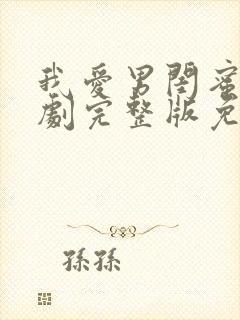 我愛男閏蜜
劇完整版免
孫孫